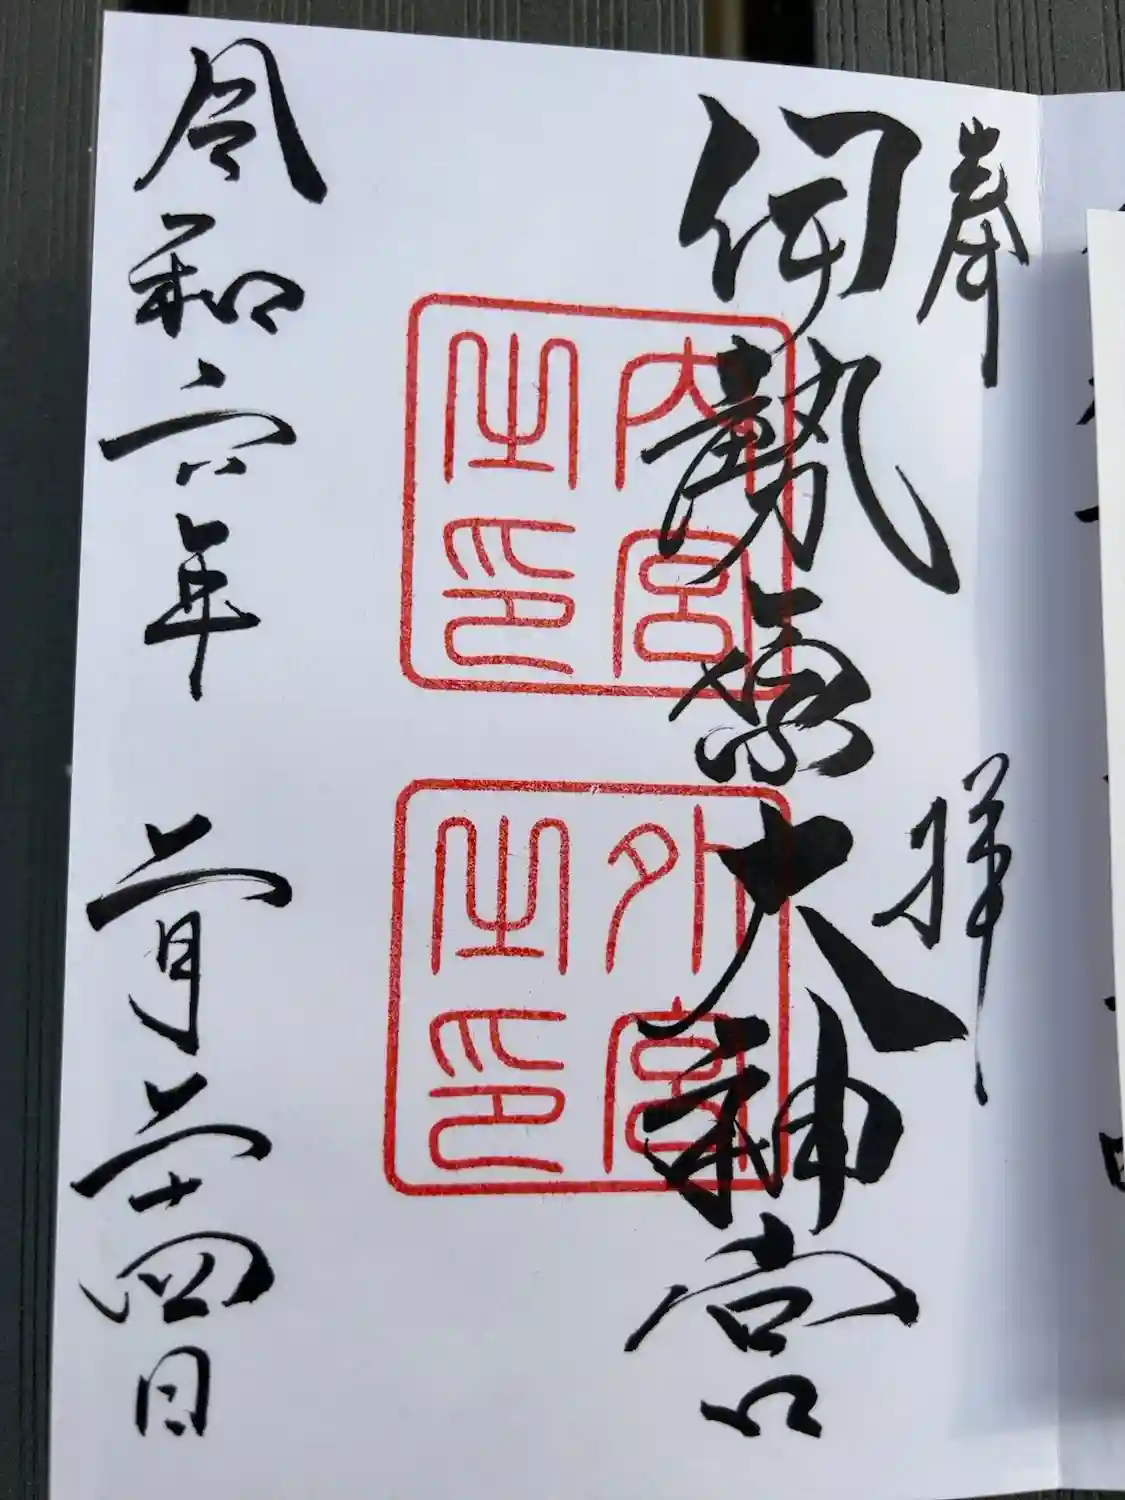 奉拝
伊勢原大神宮
内宮
之印
外宮
之印
令和六年 二月二十四日